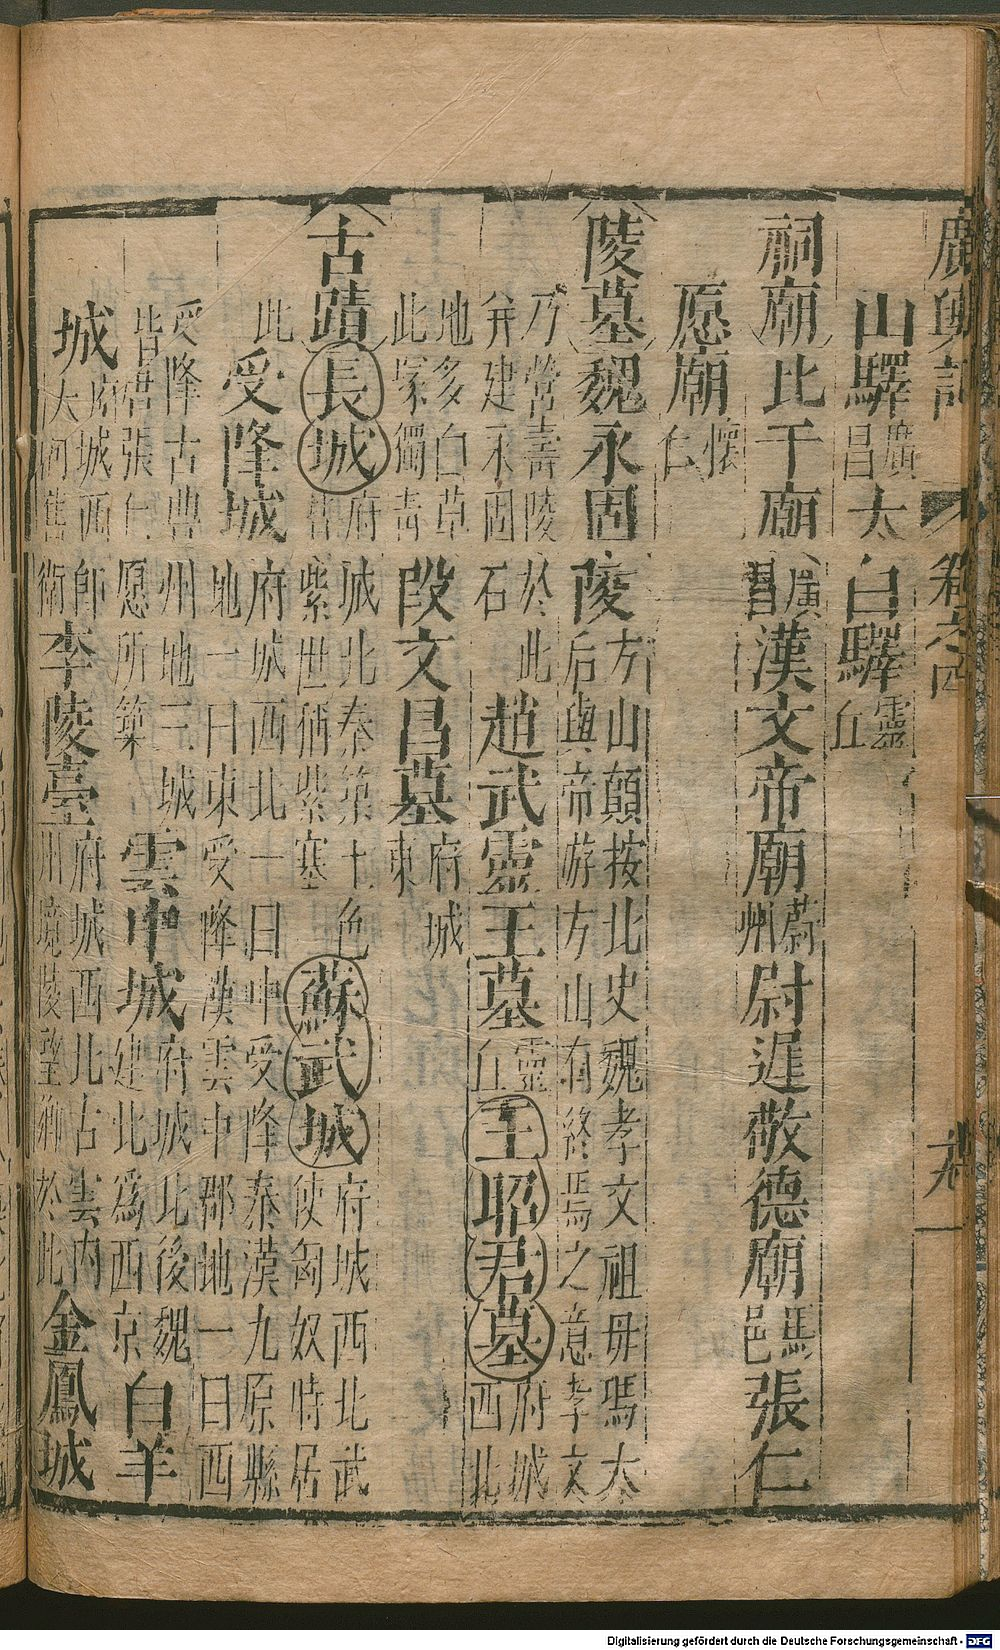 廣輿記 卷之四 十九
山驛廣昌太白驛靈丘
祠廟比干廟廣昌漢文帝廟蔚州尉遲敬德廟馬邑張仁
愿廟懷仁
陵墓魏永固陵方山顛按北史魏孝文祖母馮太后與帝游方山有終焉之意孝文
乃營壽陵於此并建永固石趙武靈王墓靈丘王昭君墓府城西北
地多白草此冢獨青段文昌墓府城東
古蹟長城府城北秦築土色紫世稱紫塞蘇武城府城西北武使匈奴時居
此受降城府城西北一曰中受降秦漢九原縣地一曰東受降漢雲中郡地一曰西
受降古豊州地三城皆唐張仁愿所築雲中城府城北後魏建北為西京白羊
城府城西大同舊師衛李陵臺府城西北古雲內州境陵望鄉於此金鳳城
Digitalisierung gefördert durch die Deutsche Forschungsgemeinschaft - DFG